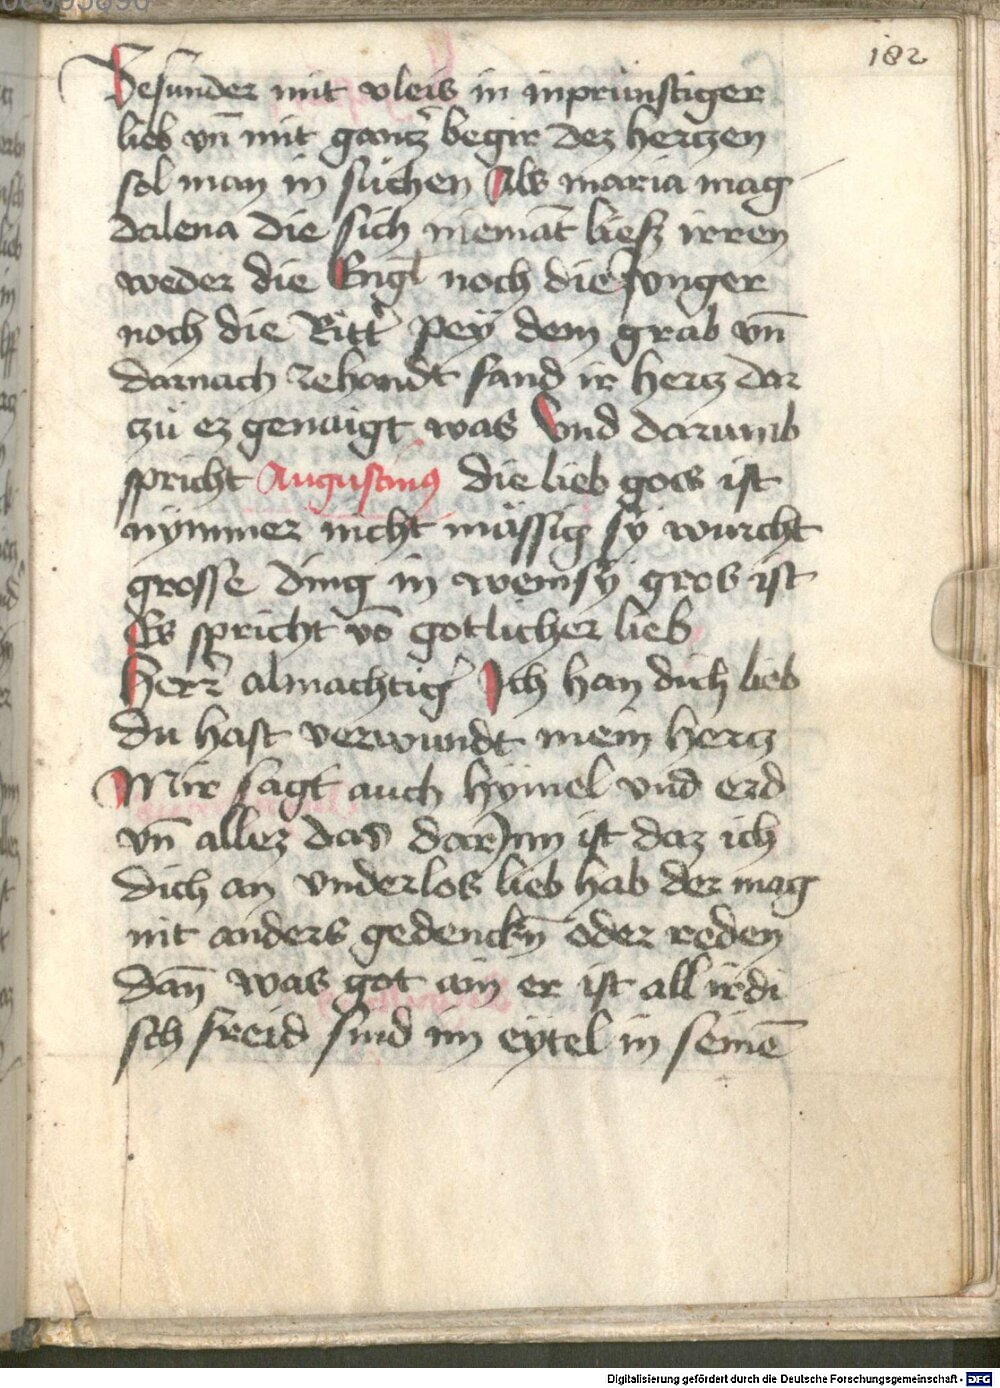 182
Besunder mit vleis in inprünstiger
lieb vn̄ mit gantz̉ begir dez hertzen
sol man in süchen Als maria mag
dalena die sich niemāt liesz irren
weder die Engl noch die Junger
noch die Ritt̉ pey dem grab vn̄
darnach zehandt fand ir hertz dar
zů ez genaigt was Vnd darumb
spricht Augustinus die lieb gocs ist
nymmer nicht müssig sy wurcht
grosse ding in wem sy gros ist
Es spricht vō gotlicher lieb
Herr̉ almachtig̉ Ich han dich lieb
du hast verwundt mein hertz
Mir sagt auch hymel vnd erd
vn̄ allez das darjnn ist daz ich
dich an vnderlos lieb hab der mag
nit anders gedenckn̄ oder reden
dan̄ was got ain er ist all irdi
sch freid sind im eytel in seinē
Digitalisierung gefördert durch die Deutsche Forschungsgemeinschaft - DFG